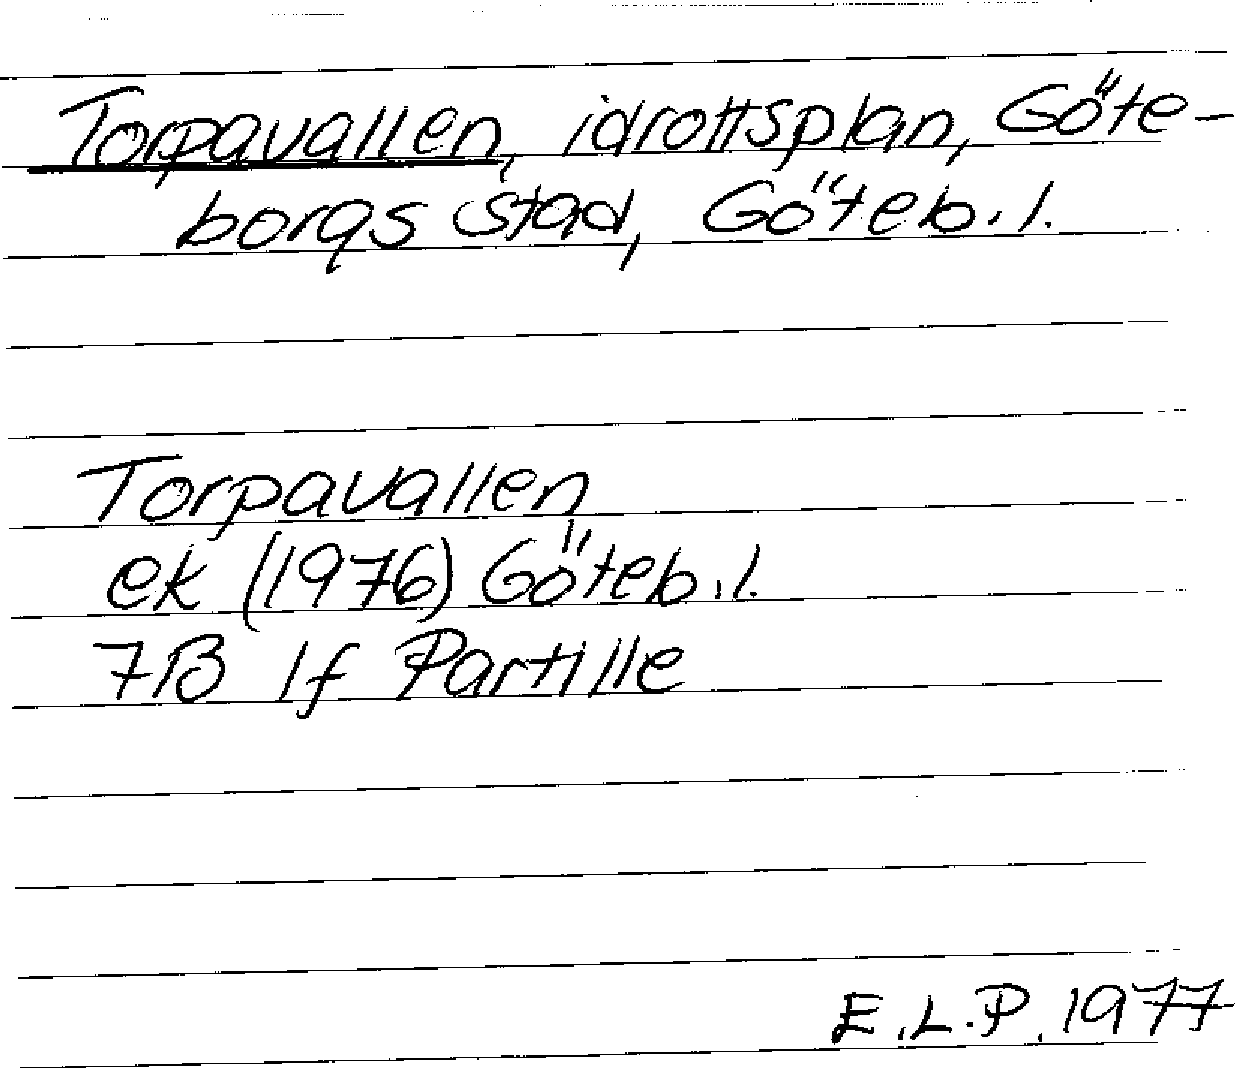 Torpavallen, idrottsplan, Göte-
borgs stad, Göteb. l.
Torpavallen
ek (1976) Göteb. l.
7B 1f Partille
E.L.P. 1977